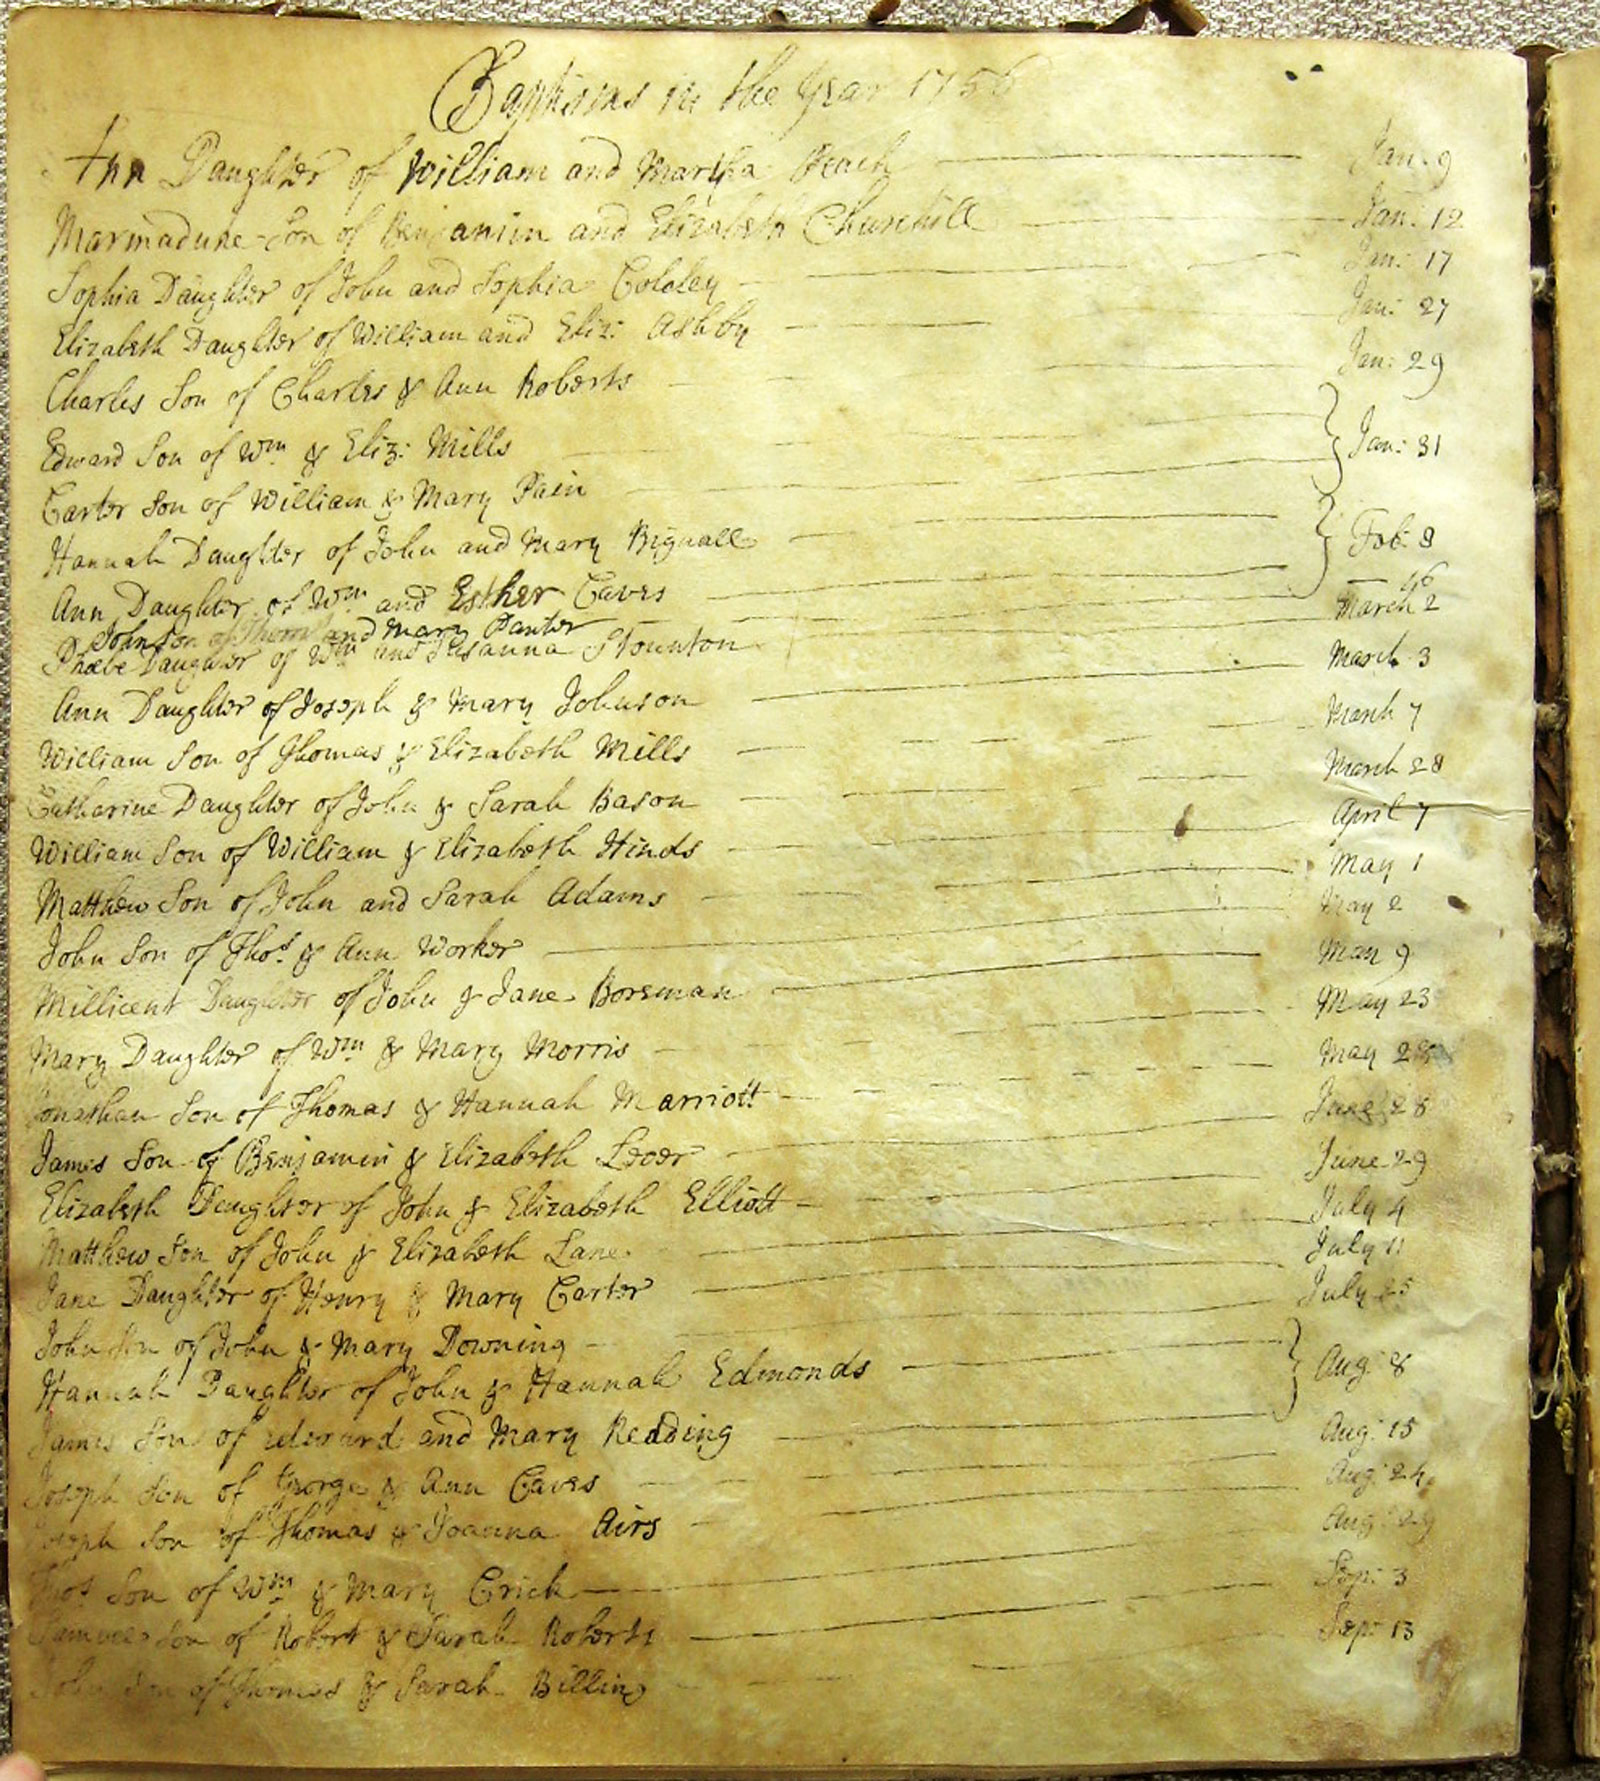 Baptisms in the Year 1756
Ann Daughter of William and Martha Jan: 9
Marmaduke Son of Benjamin and Elizabeth Churchill Jan: 12
Sophia Daughter of John and Sophia Cololey Jan: 17
Elizabeth Daughter of William and Eliz: Ashby Jan: 27
Charles Son of Charles & Ann Roberts Jan: 29
Edward Son of Wm & Eliz: Mills
Carter Son of William & Mary Pain Jan: 31
Hannah Daughter of John and Mary Bignall
Ann Daughter of Wm and Esther Caves Feb: 8
John Son of and Mary Panter
Phœbe Daughter of Wm and Susanna Stounton March 2
Ann Daughter of Joseph & Mary Johnson March 3
William Son of Thomas & Elizabeth Mills March 7
Catharine Daughter of John & Sarah Bason March 28
William Son of William & Elizabeth Hinds April 7
Matthew Son of John and Sarah Adams May 1
John Son of Thos & Ann Worker May 2
Millicent Daughter of John & Jane Boreman May 9
Mary Daughter of Wm & Mary Morris May 23
Jonathan Son of Thomas & Hannah Marriott May
James Son of Benjamin & Elizabeth Lever June 28
Elizabeth Daughter of John & Elizabeth Elliott June 29
Matthew Son of John & Elizabeth Lane July 4
Jane Daughter of Henry & Mary Carter July 11
John Son of John & Mary Downing July 25
Hannah Daughter of John & Hannah Edmonds
James Son of Edward and Mary Redding Aug: 8
Joseph Son of George & Ann Caves Aug: 15
Joseph Son of Thomas & Joanna Airs Aug: 24
Thos Son of Wm & Mary Crick Aug: 29
Samuel Son of Robert & Sarah Roberts Sep: 3
John Son of Thomas & Sarah Billing Sep: 13